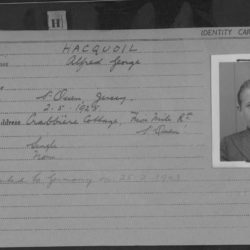 H
IDENTITY CAR
HACQUOIL
Alfred George
St Ouen, Jersey.
2. 5. 1923.
Address Crabbière Cottage, Five Mile Rd.
St Ouen.
Single
None
to Germany on 25-2-1943